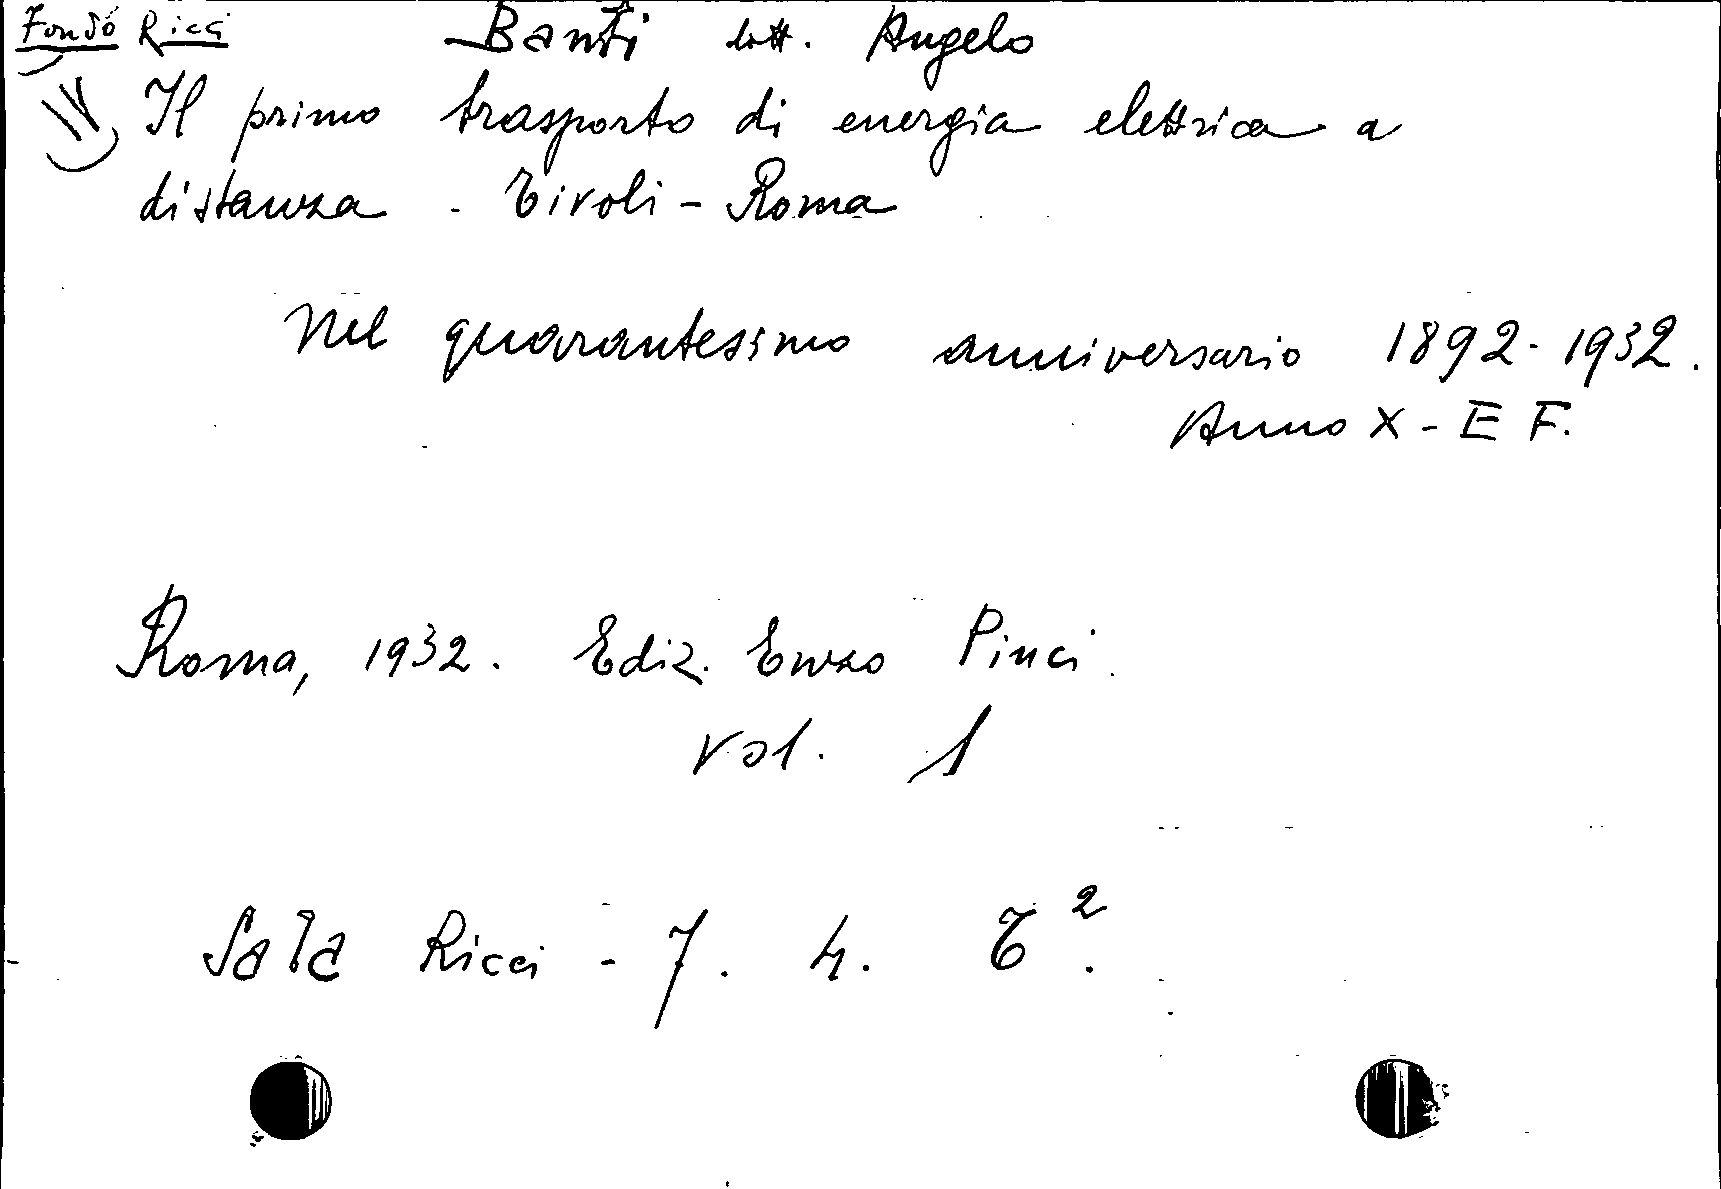 Fondo Ricci
Banti dott. Angelo
Il primo trasporto di energia elettrica a
distanza - Tivoli - Roma
Nel quarantesimo anniversario 1892 - 1932.
Anno X - E F.
Roma, 1932. Ediz. Enzo Pinci.
vol. 1
Sala Ricci - 7. 4. T².